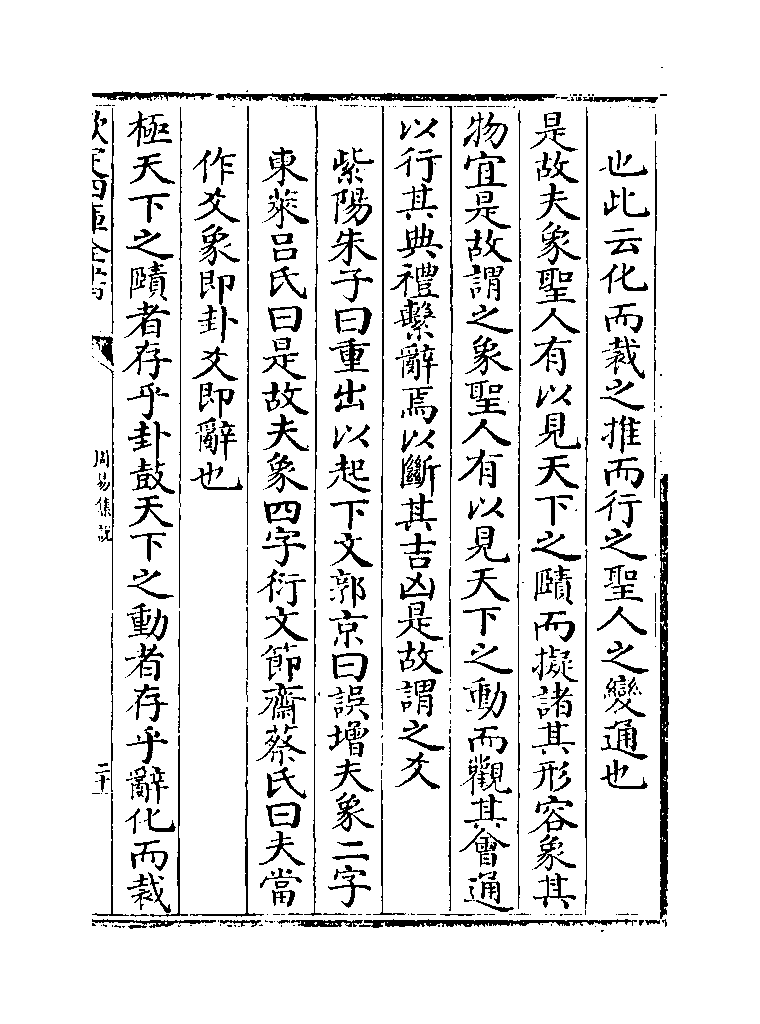 也此云化而裁之推而行之聖人之變通也
是故夫象聖人有以見天下之賾而擬諸其形容象其
物宜是故謂之象聖人有以見天下之動而觀其會通
以行其典禮繫辭焉以斷其吉凶是故謂之爻
紫陽朱子曰重出以起下文郭京曰誤增夫象二字
東萊吕氏曰是故夫象四字衍文節齋蔡氏曰夫當
作爻象即卦爻即辭也
極天下之賾者存乎卦鼓天下之動者存乎辭化而裁
欽定四庫全書
周易集說
二十